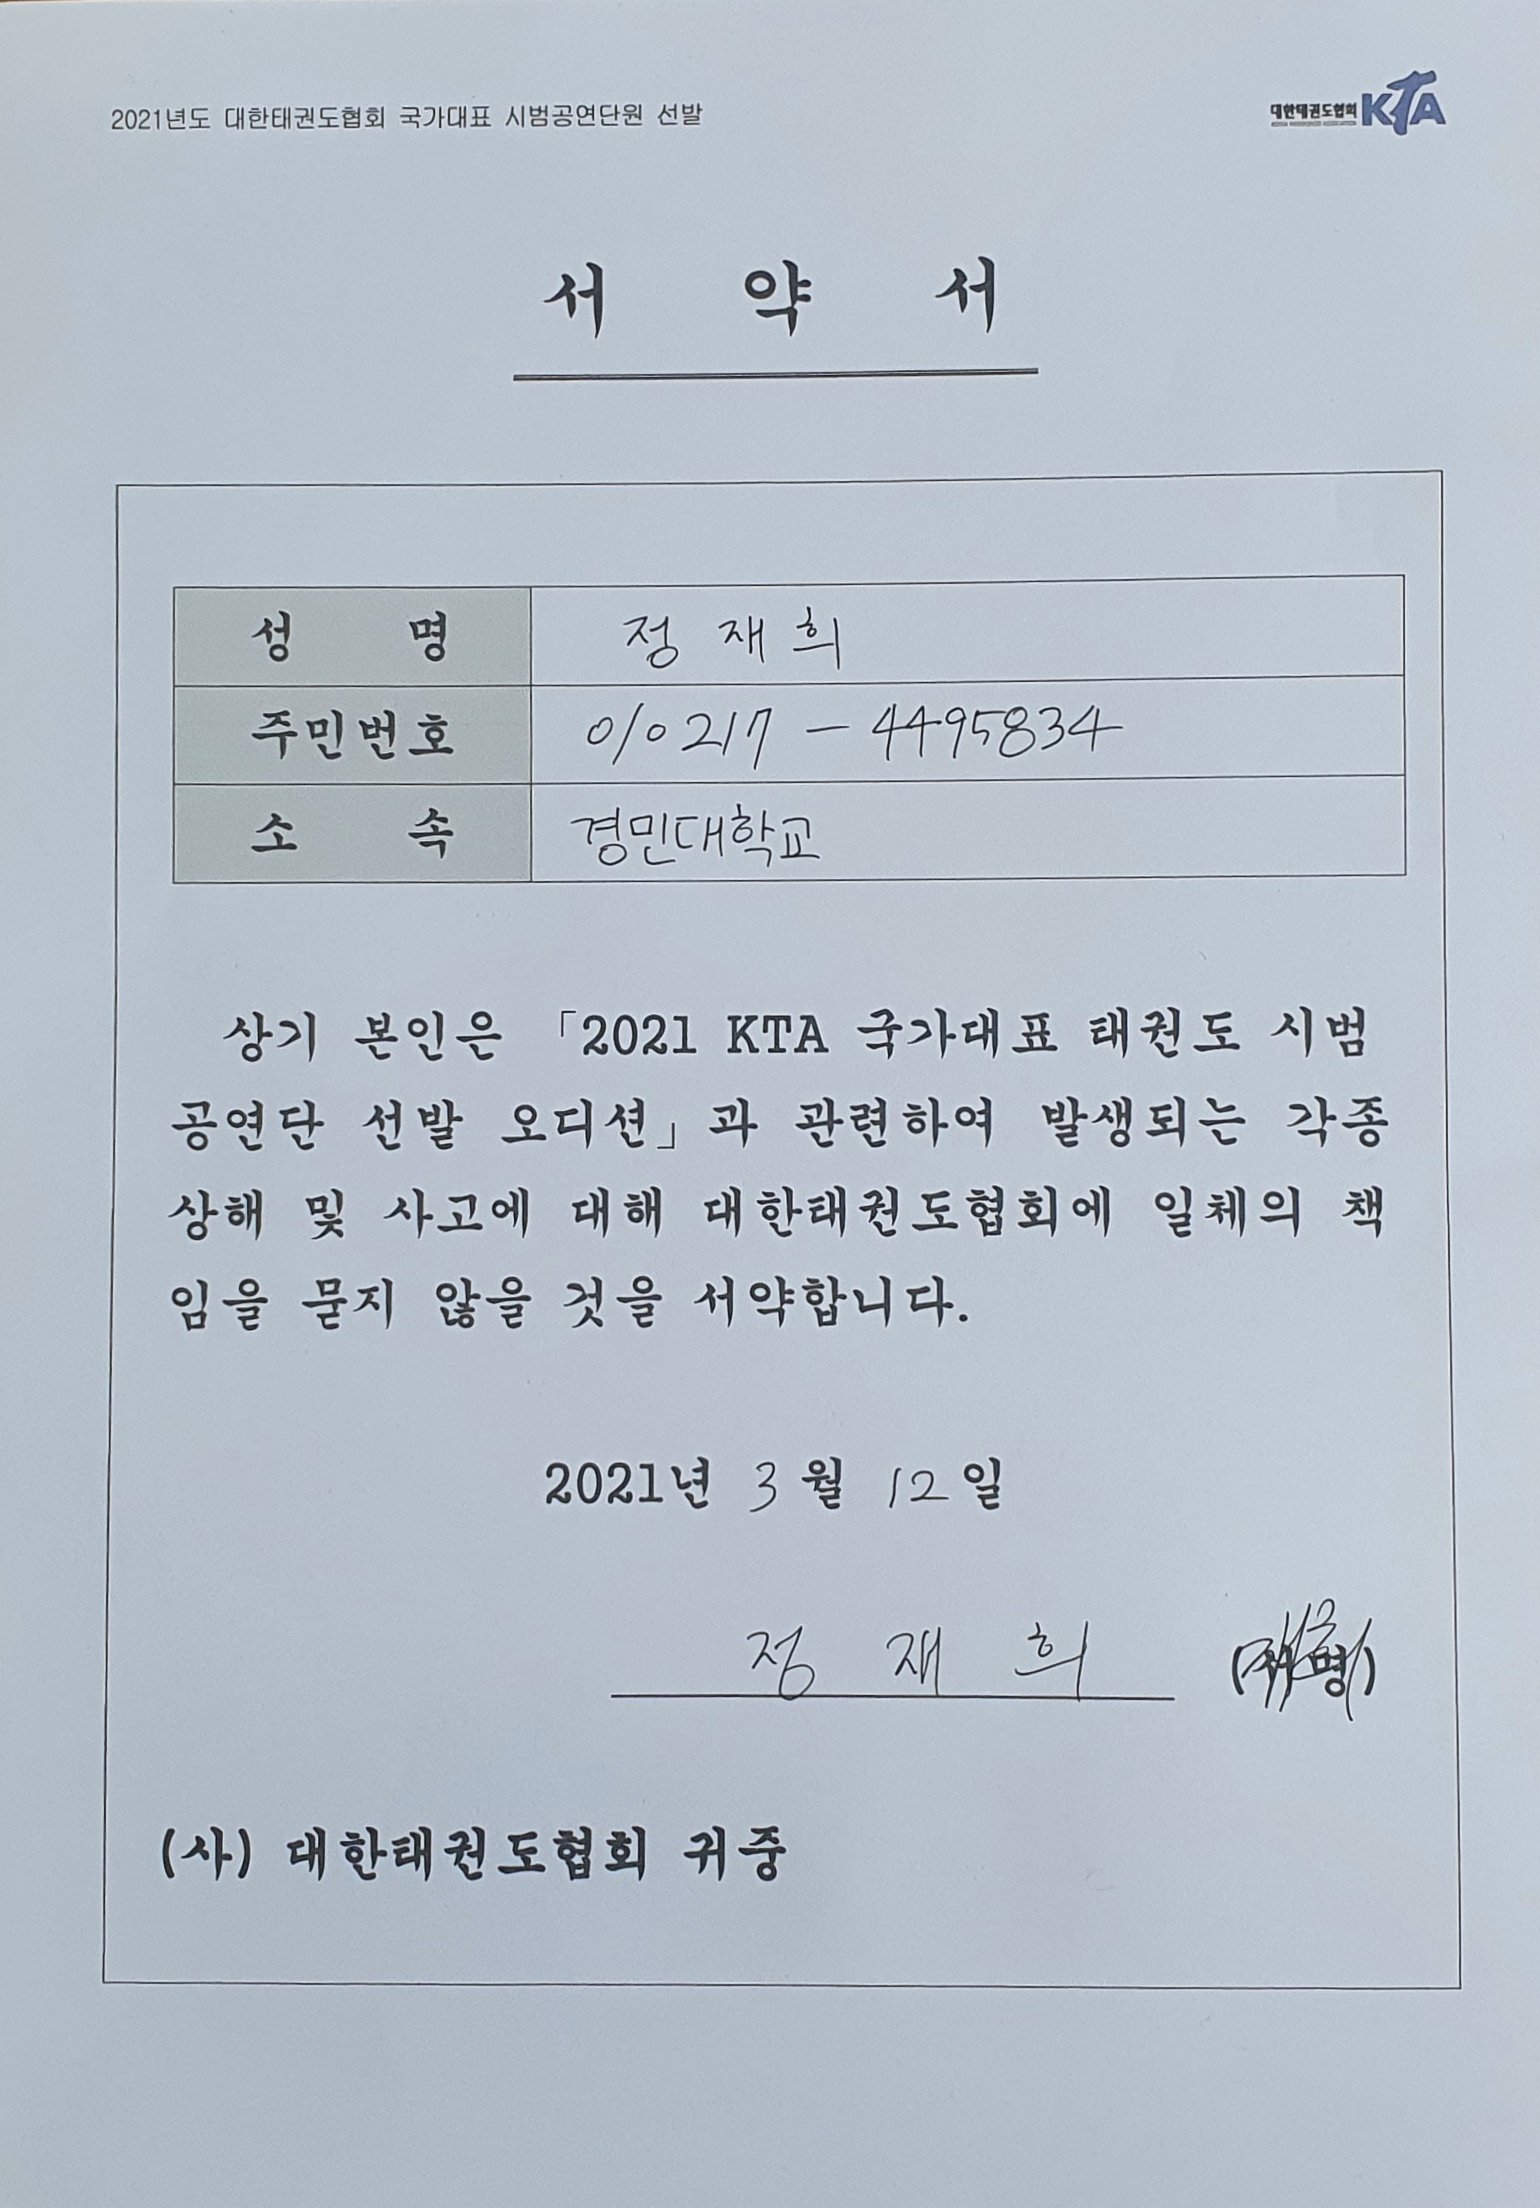 2021년도 대한태권도협회 국가대표 시범공연단원 선발
대한태권도협회 KTA
서 약 서
성 명 정 재 희
주민번호 010217 - 4495834
소 속 경민대학교
상기 본인은 「2021 KTA 국가대표 태권도 시범
공연단 선발 오디션」과 관련하여 발생되는 각종
상해 및 사고에 대해 대한태권도협회에 일체의 책
임을 묻지 않을 것을 서약합니다.
2021년 3월 12일
정 재 희 (서명)
(사) 대한태권도협회 귀중